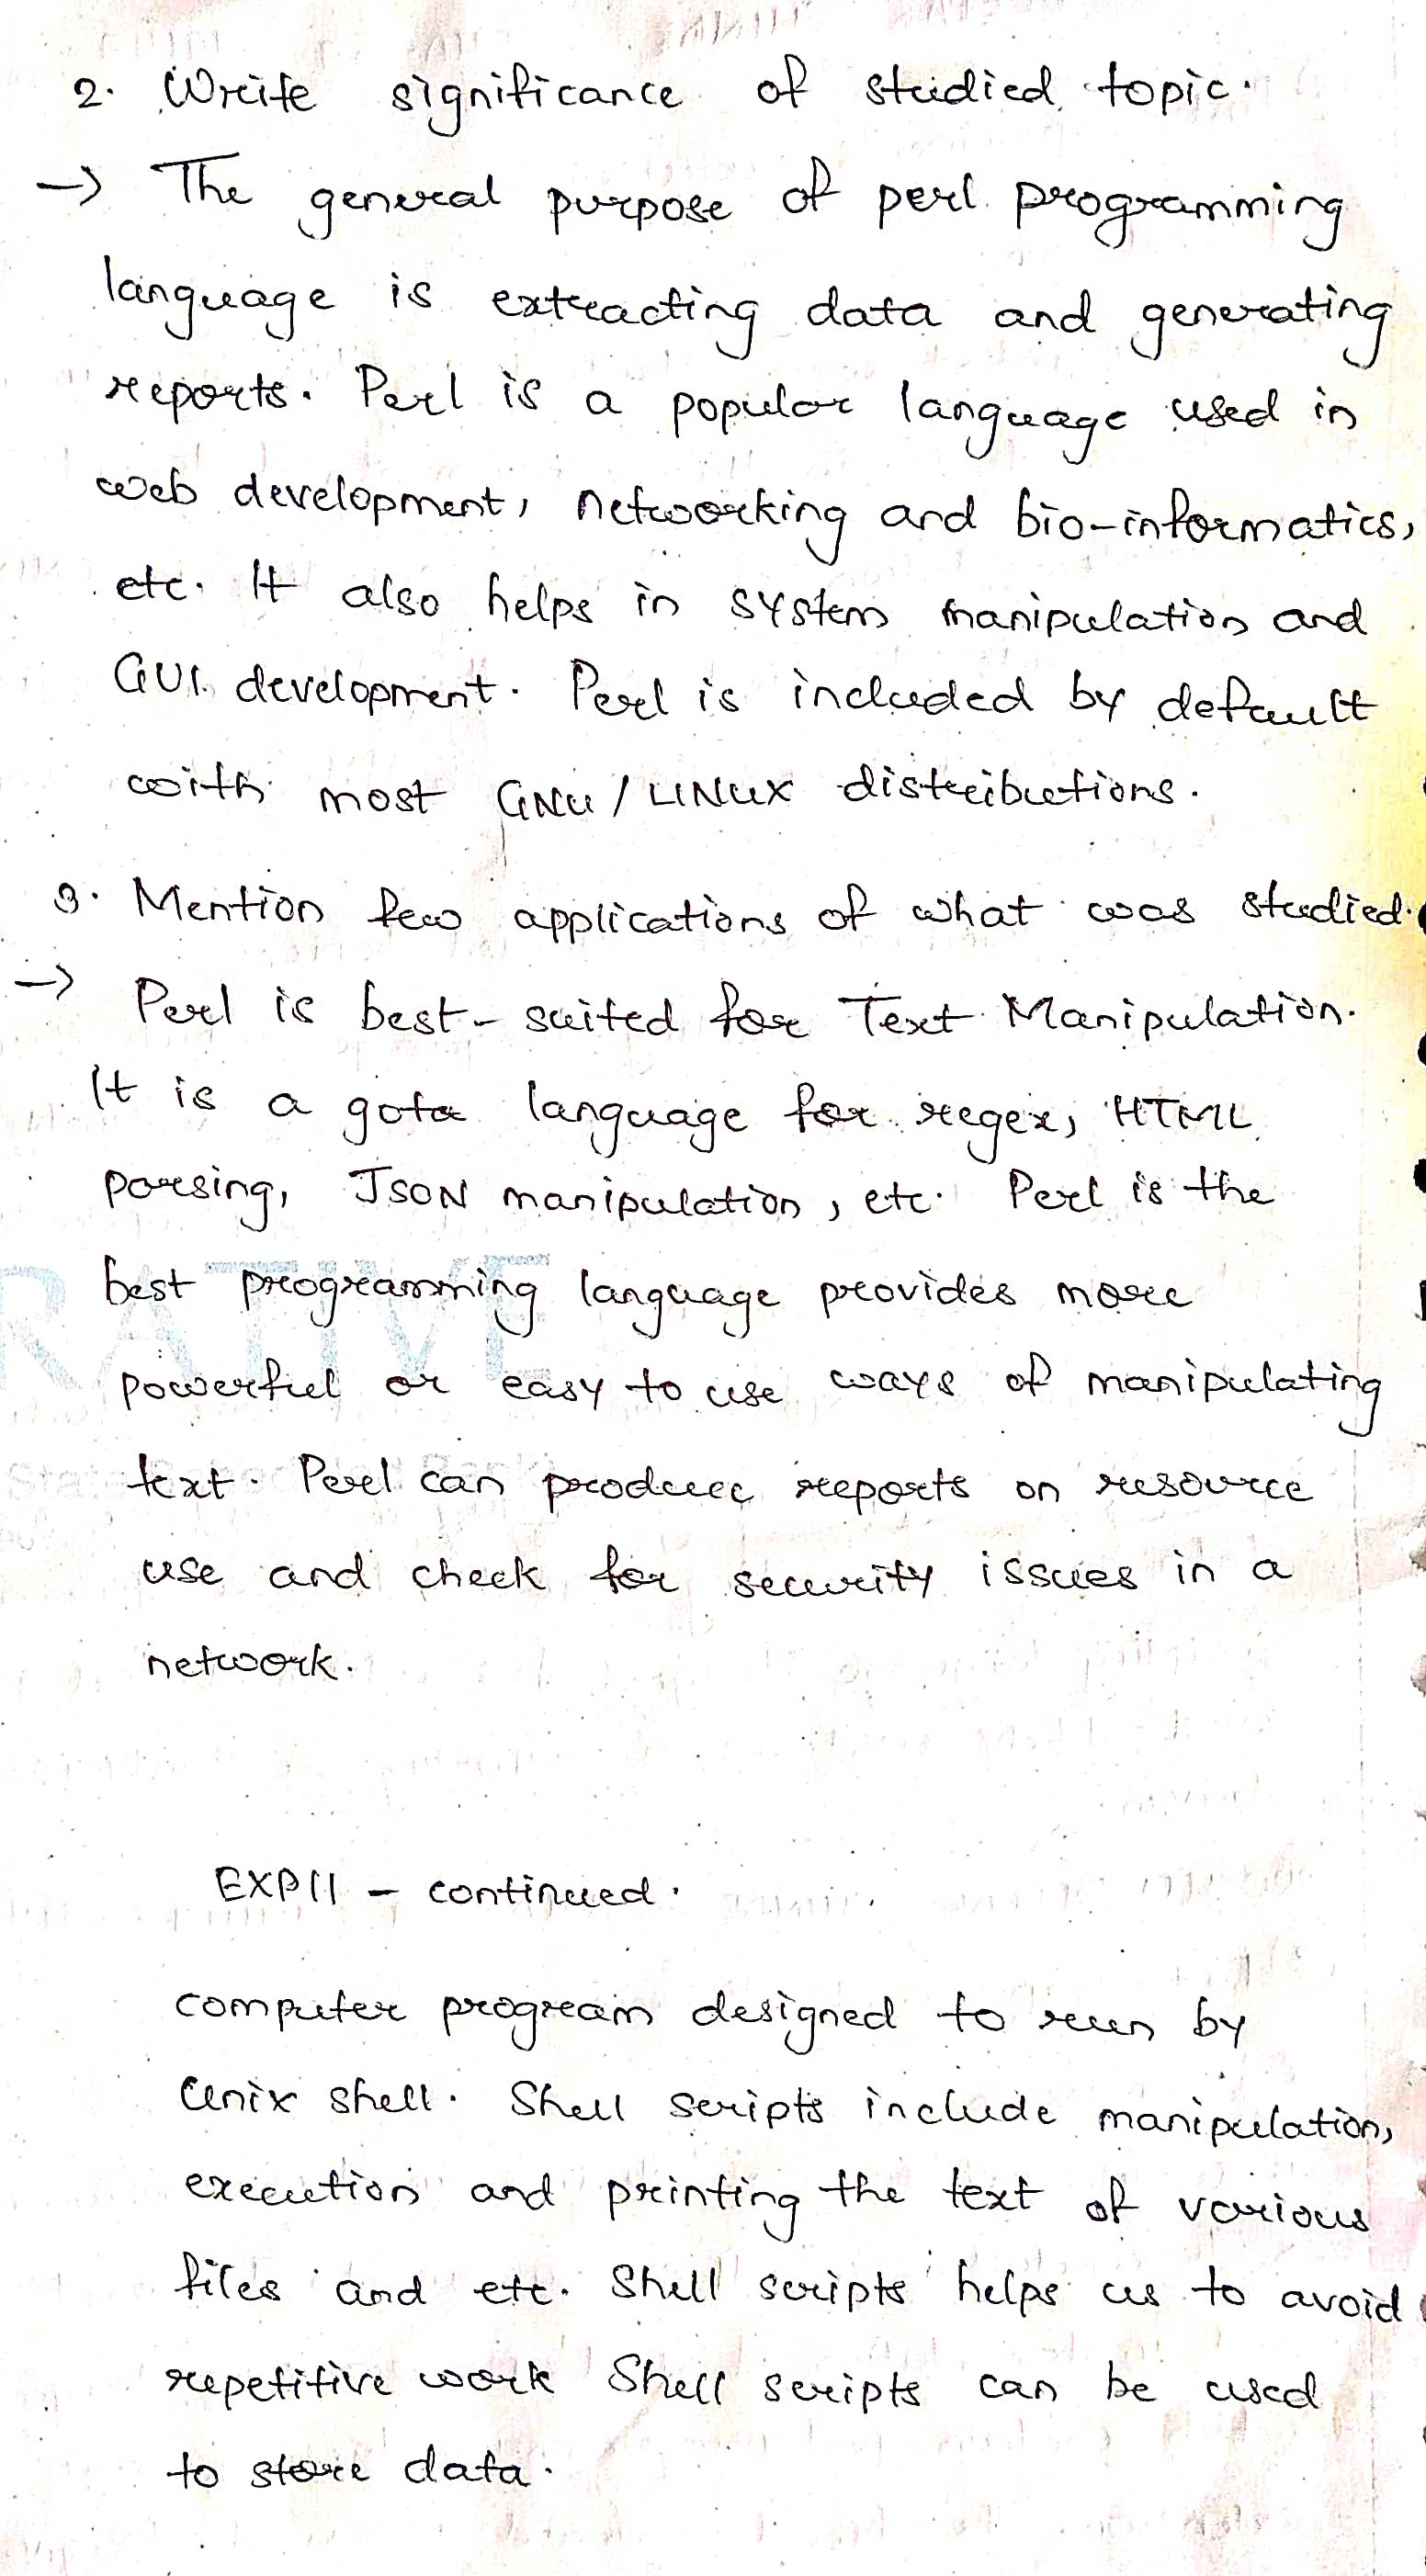 2. Write significance of studied topic.
→ The general purpose of perl programming
language is extracting data and generating
reports. Perl is a popular language used in
web development, networking and bio-informatics,
etc. It also helps in system manipulation and
GUI development. Perl is included by default
with most GNU / LINUX distributions.
3. Mention few applications of what was studied.
→ Perl is best-suited for Text Manipulation.
It is a goto language for regex, HTML
parsing, JSON manipulation, etc. Perl is the
best programming language provides more
powerful or easy to use ways of manipulating
text. Perl can produce reports on resource
use and check for security issues in a
network.
EXP11 - continued.
computer program designed to run by
Unix shell. Shell scripts include manipulation,
execution and printing the text of various
files and etc. Shell scripts helps us to avoid
repetitive work Shell scripts can be used
to store data.